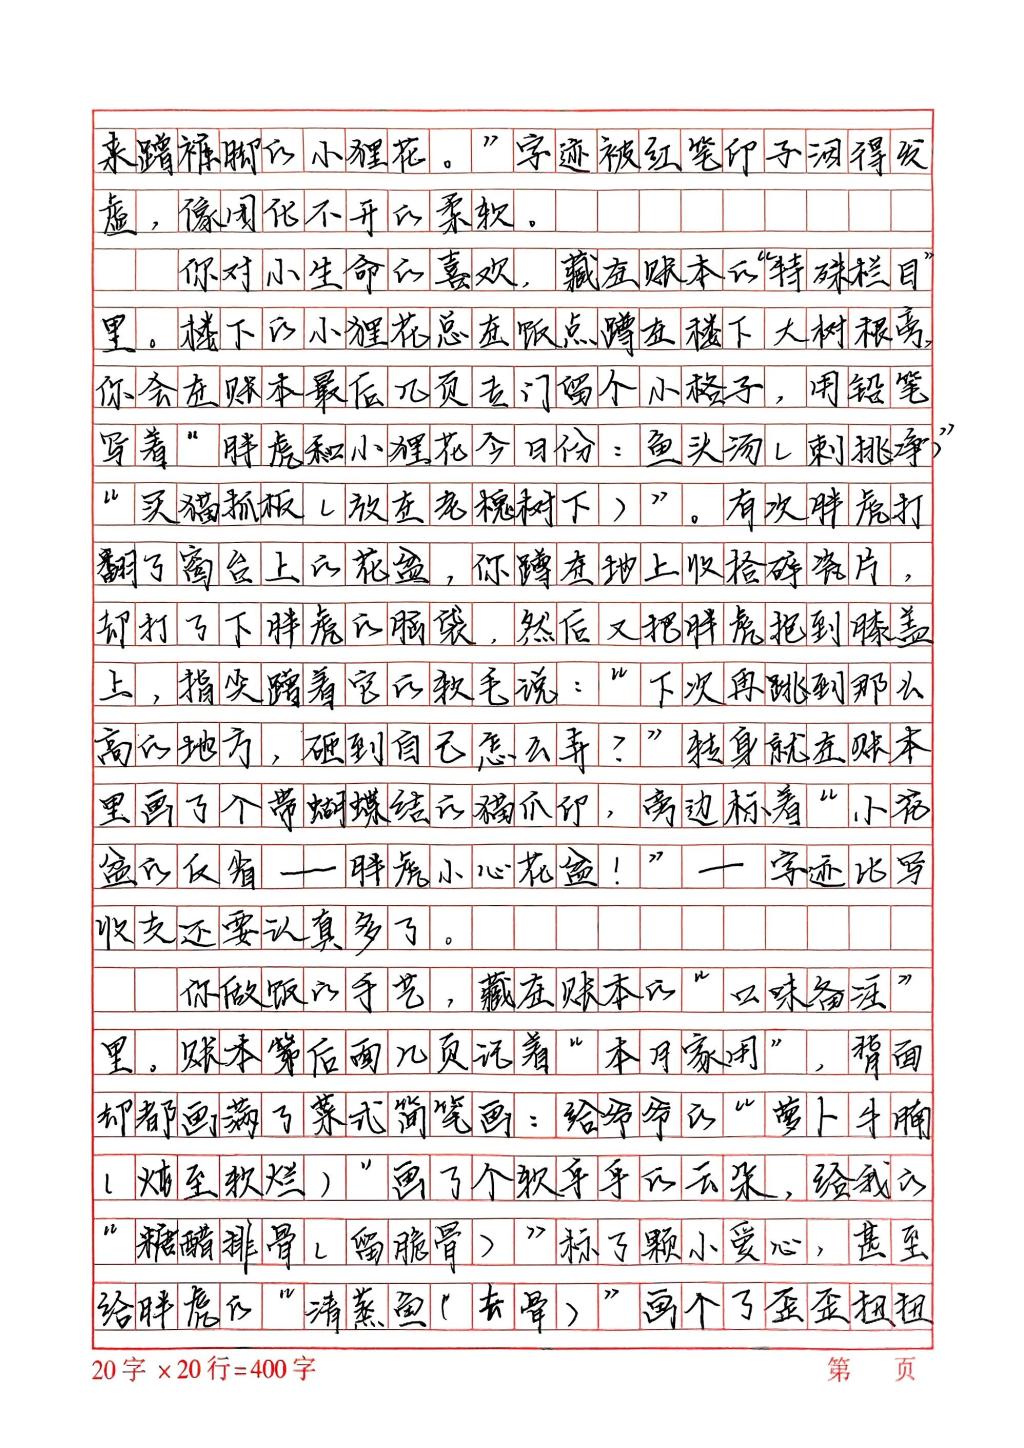 来蹭裤脚的小狸花。”字迹被红笔印子洇得发
虚，像团化不开的柔软。
你对小生命的喜欢，藏在账本的“特殊栏目”
里。楼下的小狸花总在饭点蹲在楼下大树根旁，
你会在账本最后几页专门留个小格子，用铅笔
写着“胖虎和小狸花今日份：鱼头汤（刺挑净）”
“买猫抓板（放在老槐树下）”。有次胖虎打
翻了窗台上的花盆，你蹲在地上收拾碎瓷片，
却打了下胖虎的脑袋，然后又把胖虎抱到膝盖
上，指尖蹭着它的软毛说：“下次再跳到那么
高的地方，砸到自己怎么弄？”转身就在账本
里画了个带蝴蝶结的猫爪印，旁边标着“小花
盆的反省——胖虎小心花盆！”—字迹比写
收支还要认真多了。
你做饭的手艺，藏在账本的“口味备注”
里。账本第后面几页记着“本月家用”，背面
却都画满了菜式简笔画：给爷爷的“萝卜牛腩
（炖至软烂）”画了个软乎乎的云朵，给我的
“糖醋排骨（留脆骨）”标了颗小爱心，甚至
给胖虎的“清蒸鱼（去骨）”画个了歪歪扭扭
20字×20行=400字 第 页